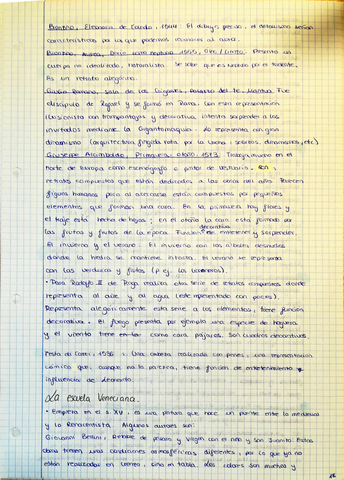 Bronzino, Eleonora de Toledo, 1544. El dibujo preciso, el detallismo son
características por las que podemos reconocer al autor.
Bronzino, Andrea Doria como Neptuno, 1555, Óleo/Lienzo. Presenta un
cuerpo no idealizado, naturalista. Se sabe que es por el tridente.
Es un retrato alegórico.
Giulio Romano, Sala de los Gigantes, Palacio del Te, Mantua. Fue
discípulo de Rafael y se formó en Roma. Con esta representación
ilusionista con trampantojos y decorativa, intenta sorprender a los
invitados mediante la Gigantomaquia. Lo representa con gran
dinamismo (arquitectura fingida rota por la
Giuseppe Arcimboldo, Primavera, Otoño, 1573. Trabajó mucho en el
norte de Europa como escenógrafo o pintor de vestuario. Son
retratos compuestos que están dedicados a las del año. Parecen
figuras humanas pero al acercarse están compuestas por pequeños
elementos que forman una cara. En la primavera hay flores y
el traje está hecho de hojas; en el otoño la cara está formada por
las frutas y frutos de la época. Función decorativa de entretener y sorprender.
El invierno y el verano: El invierno con los árboles desnudos
donde la hiedra se mantiene intacta. El verano se representa
con las verduras y frutos (p. ej. la
• Para Rodolfo II de Praga realiza otra serie de retratos compuestos donde
representa al aire y al agua (este representado con peces).
Representa alegóricamente esta serie a los elementos, tiene función
decorativa. El fuego presenta por ejemplo una especie de hoguera
y el viento tiene como cara pájaros. Son cuadros decorativos
Testa di 1536: Una cabeza realizada con penes, una representación
cómica que, aunque no lo parezca, tiene función de entretenimiento
influencia de Leonardo.
La escuela Veneciana.
• Empieza en el s. XV, es una pintura que hace un puente entre lo medieval
y lo Renacentista. Algunos autores son:
Giovanni Bellini, Retablo de y Virgen con el niño y San Juanito. Estas
obras tienen unas condiciones atmosféricas diferentes, por lo que ya no
están realizadas en lienzo, sino en tabla. Los colores son muchos y